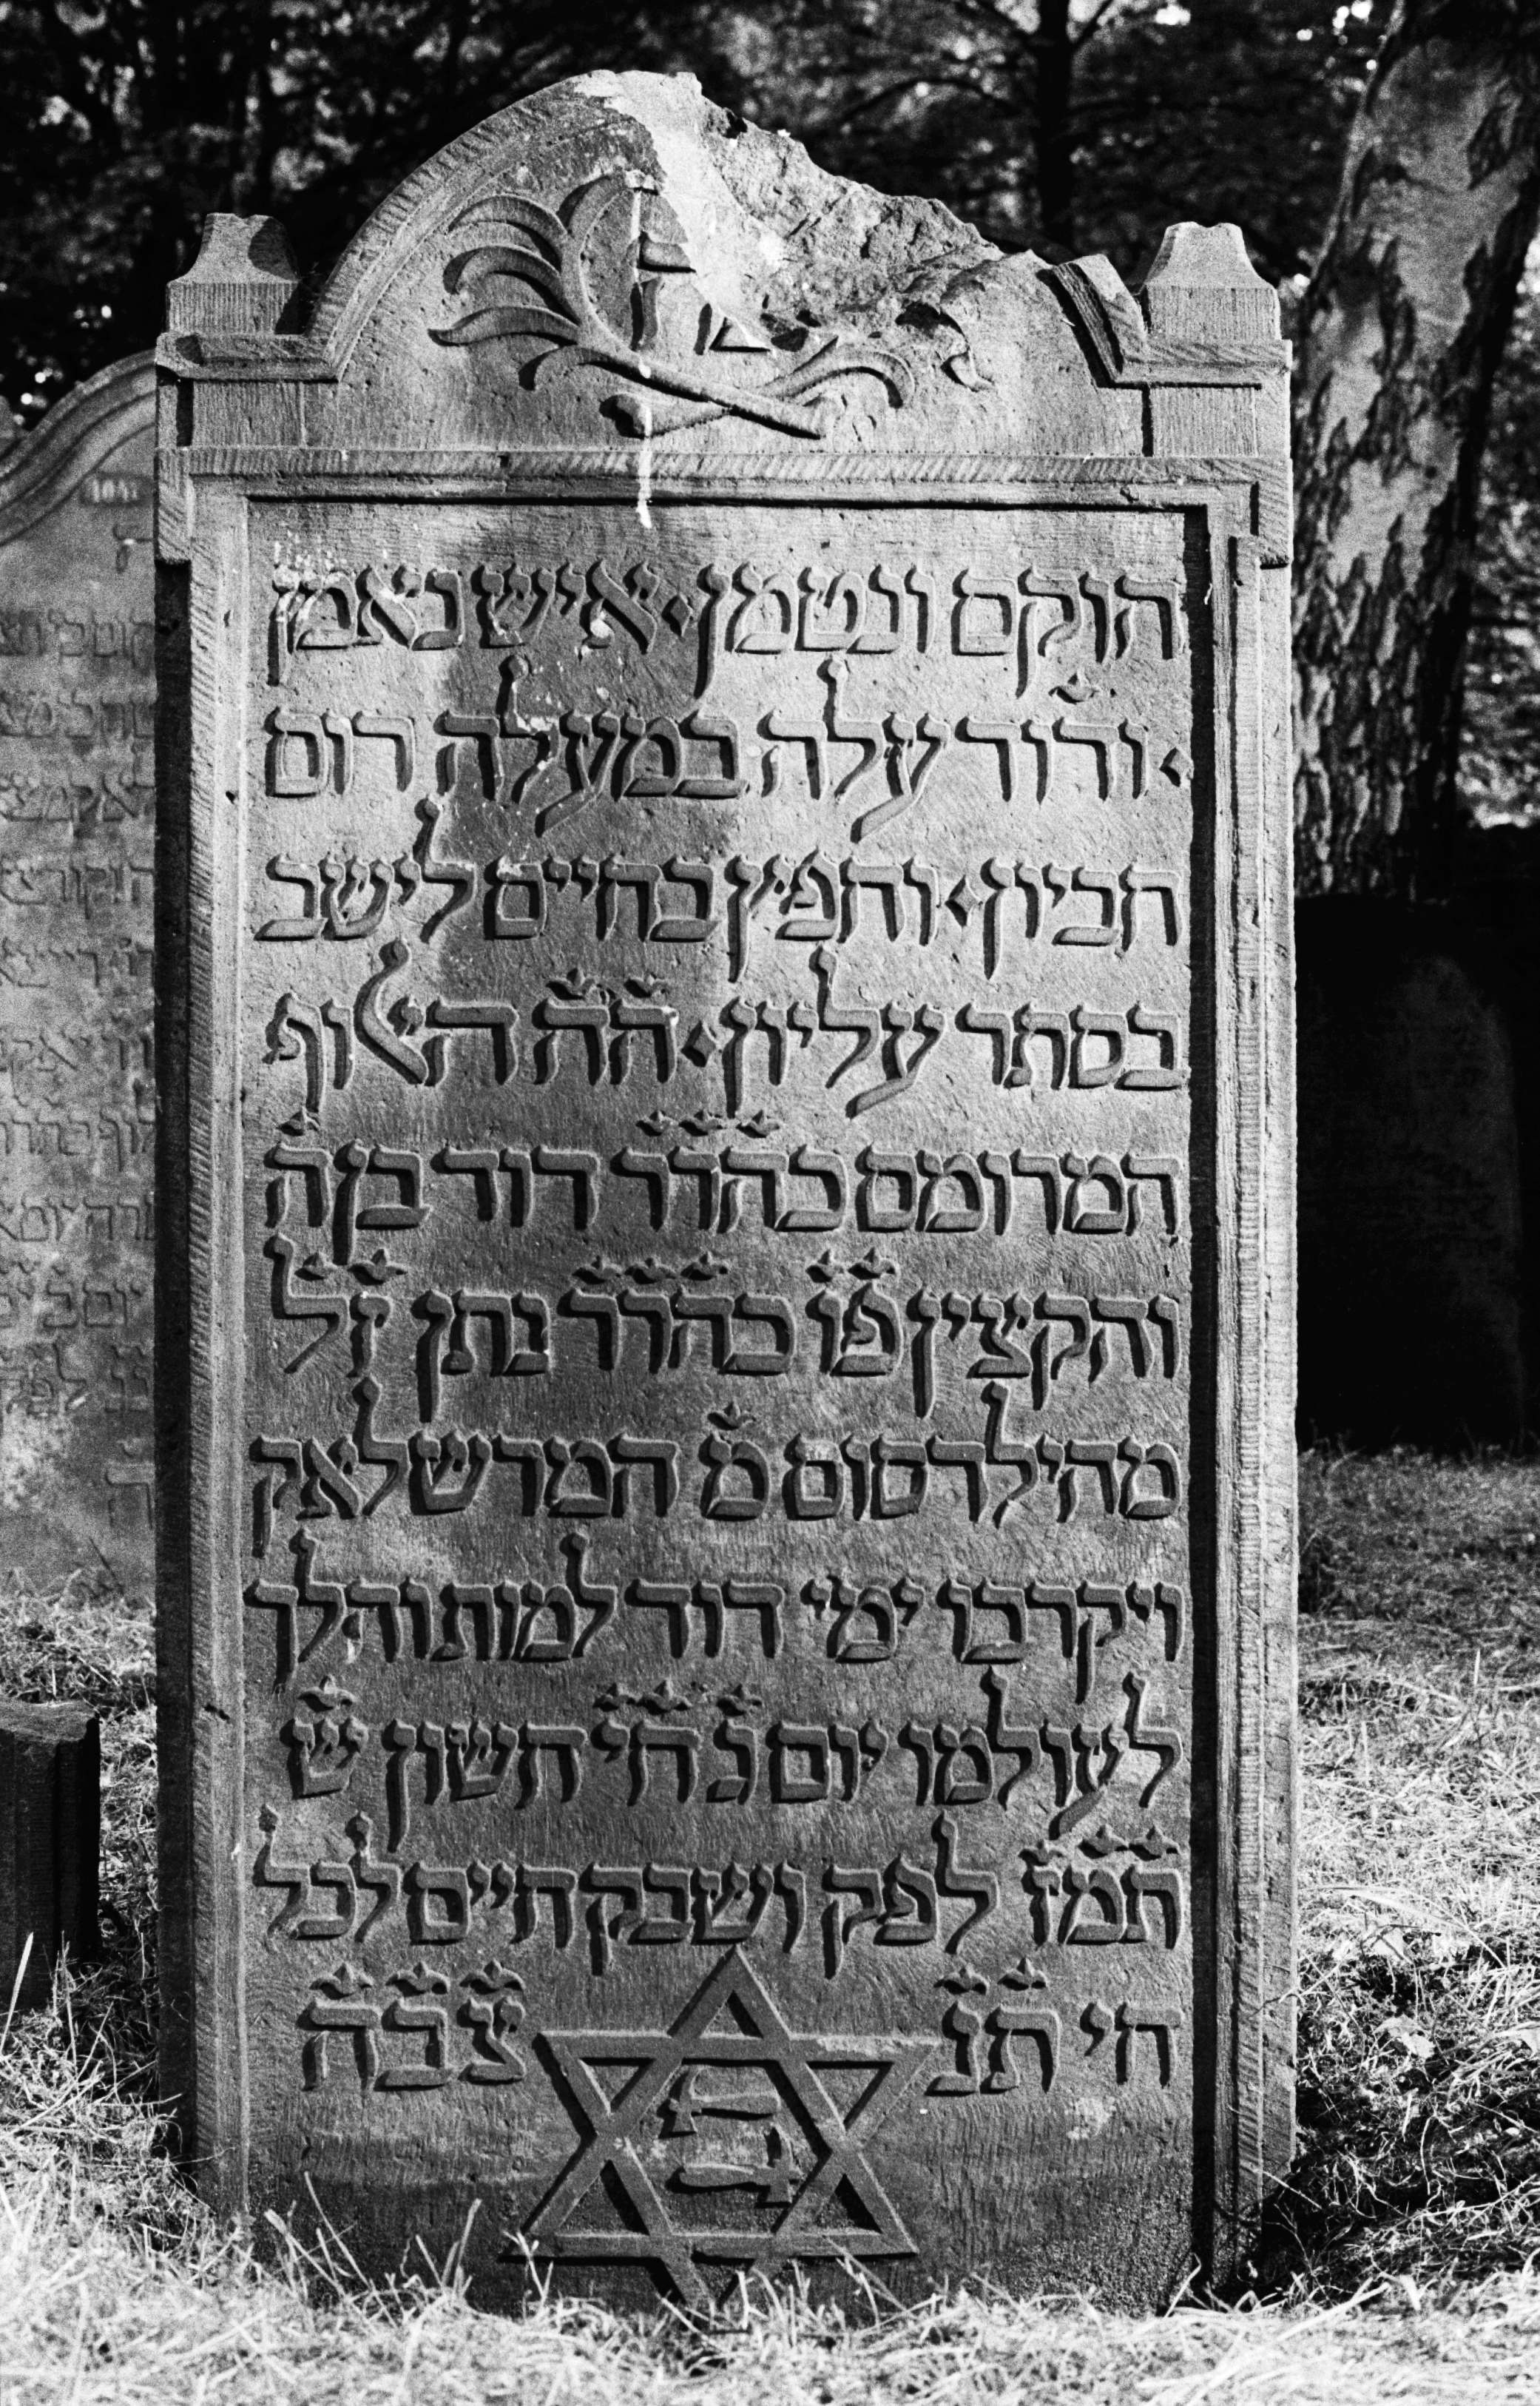 הוקם ונטמן • איש נאמן
• ודוד עלה במעלה רום
חביון • וחפץ בחיים לישב
בסתר עליון • ה״ה האלוף
המרומם כהר״ר דוד בן ה׳
והקצין פ״ו כהר״ר נתן ז״ל
מהילדסום מ׳ המרשלאק
ויקרבו ימי דוד למות והלך
לעולמו יום ג׳ ח״י חשון ש׳
תמ״ז לפק ושבק חיים לכל
חי ת״נ צב״ה